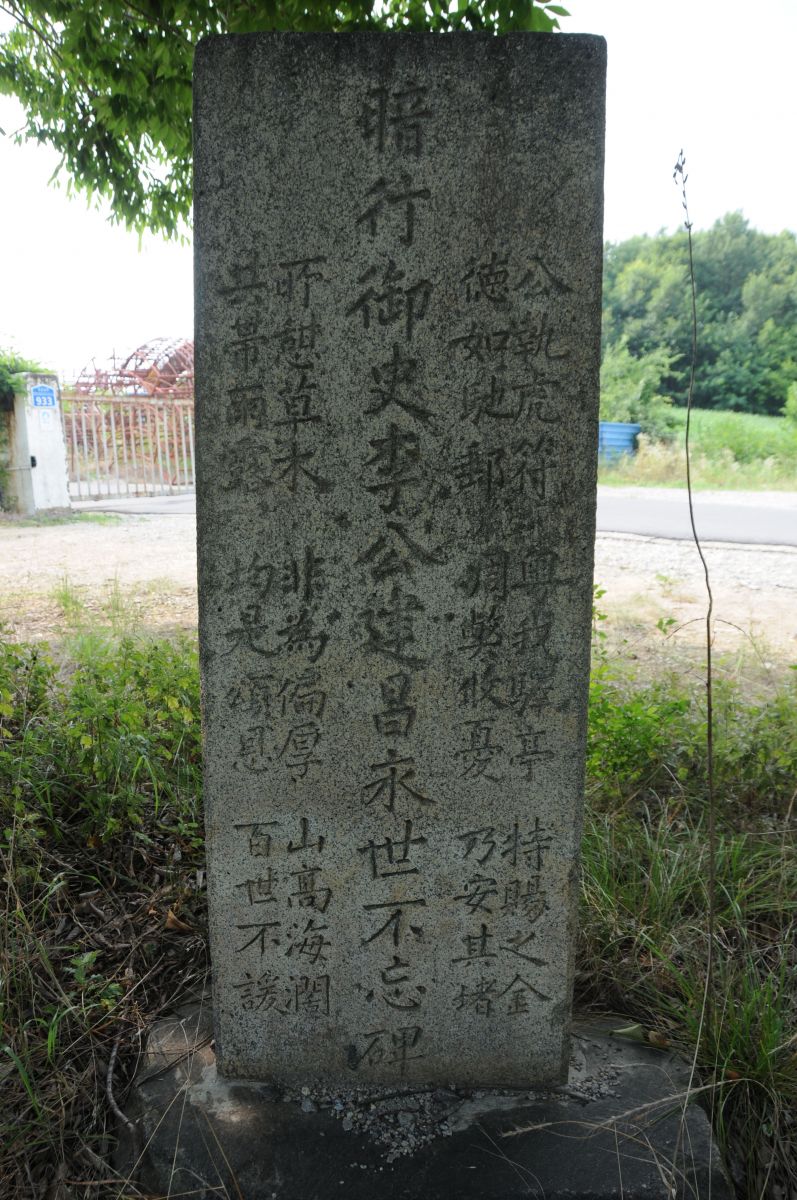 公執虎符 粤我驛亭 持賜之金
徳如地郵 凋弊攸憂 乃安其堵
暗行御史李公建昌永世不忘碑
所憩草木 非為偏厚 山高海濶
共帶雨露 均是頌恩 百世不諼
933